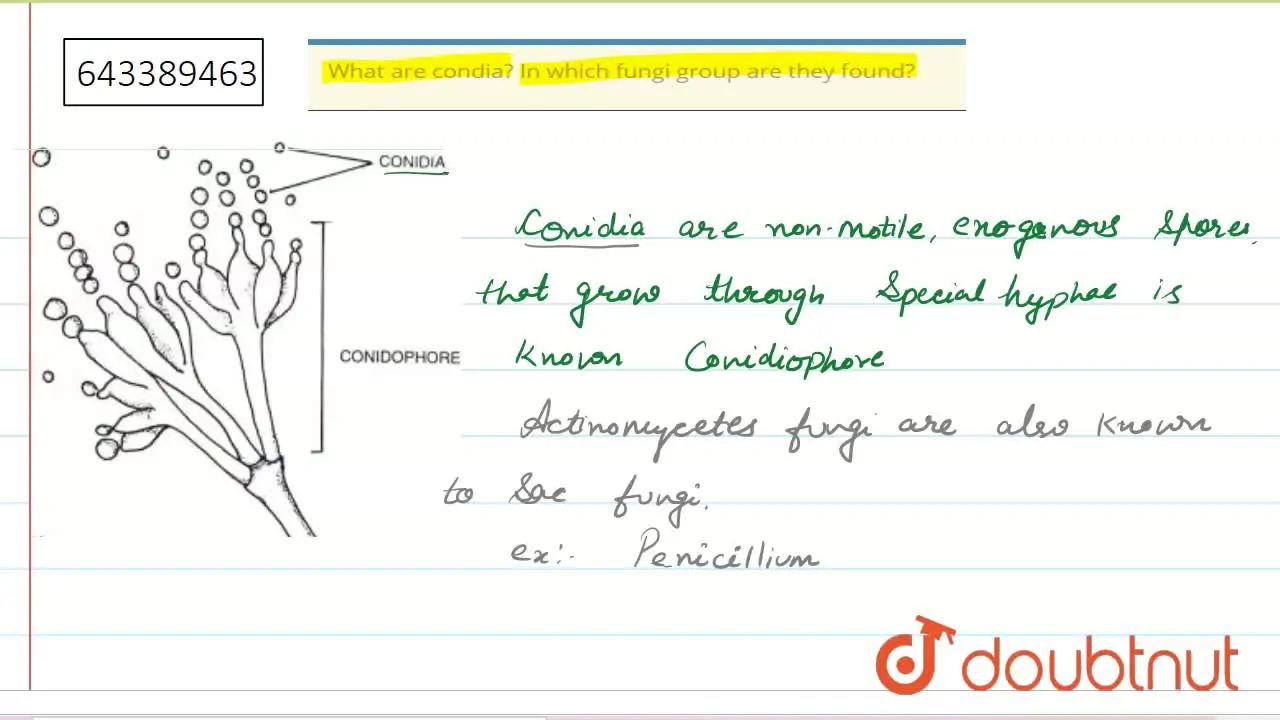 643389463
What are condia? In which fungi group are they found?
CONIDIA
CONIDOPHORE
Conidia are non-motile, exogenous spores,
that grow through special hyphae is
known Conidiophore
Actinomycetes fungi are also known
to Sac fungi.
ex:- Penicillium
doubtnut